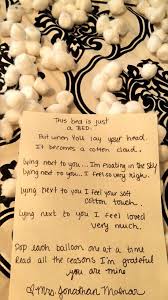 This bed is just
a BED.
But when you lay your head,
It becomes a cotton cloud.
lying next to you... I'm floating in the sky
lying next to you... I feel so very high.
lying next to you I feel your soft
cotton touch.
lying next to you I feel loved
very much.
Pop each balloon one at a time
Read all the reasons I'm grateful
you are mine
Mrs. Jonathan